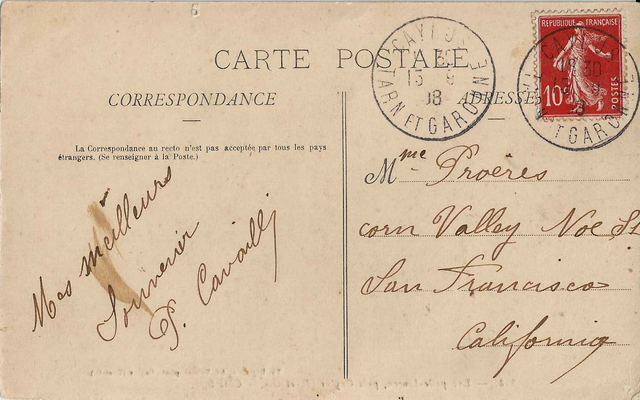 6
CARTE POSTALE
CORRESPONDANCE
ADRESSE
La Correspondance au recto n'est pas acceptée par tous les pays
étrangers. (Se renseigner à la Poste.)
Mes meilleurs
Souvenir
P. Cavaillé
REPUBLIQUE FRANÇAISE
10
POSTES
CAYLUS
13 9
08
TARN ET GARONNE
Mme Proères
corn Valley Noe St
San Francisco
California